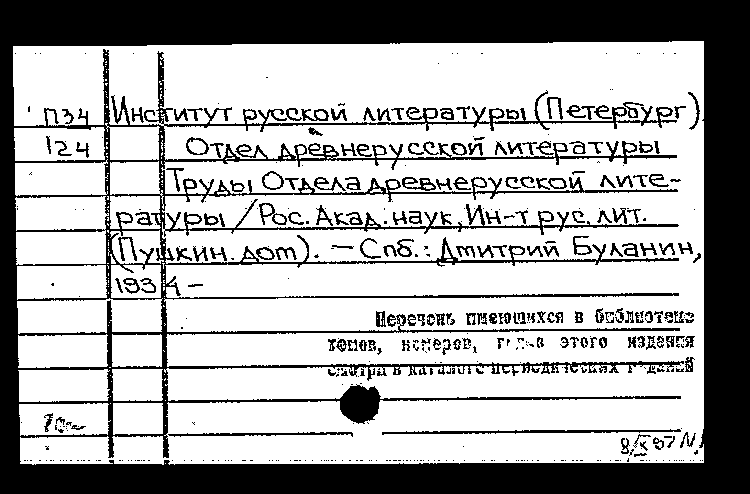 П34 Институт русской литературы (Петербург).
124 Отдел древнерусской литературы
Труды Отдела древнерусской лите-
ратуры / Рос. Акад. наук, Ин-т рус. лит.
(Пушкин. дом). — Спб.: Дмитрий Буланин,
1934 –
Перечень имеющихся в библиотеке
томов, номеров, годов этого издания
смотри в каталоге периодических изданий